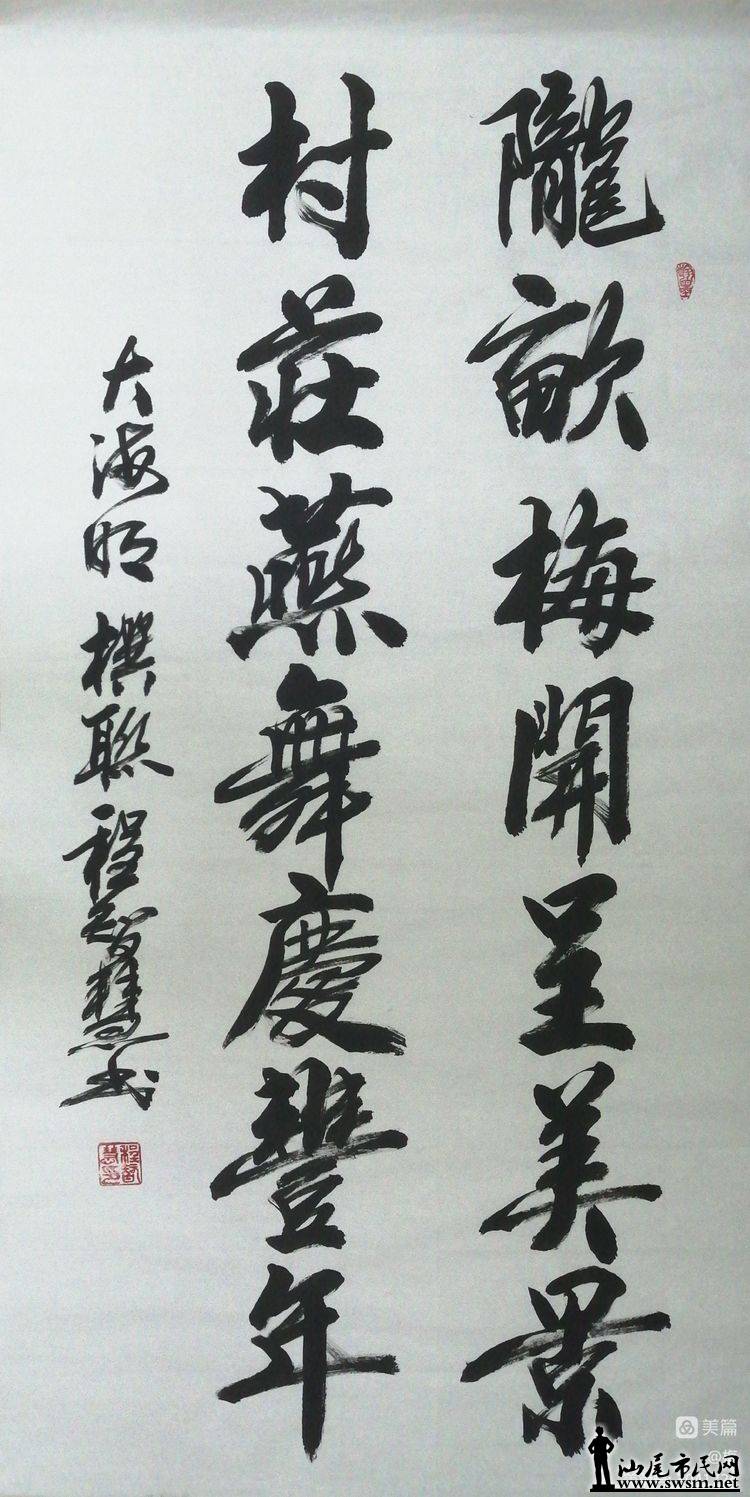 隴畝梅開呈美景
村莊燕舞慶豐年
大海明撰聯程智慧书
程智慧印
美篇
@梅
汕尾市民网
www.swsm.net